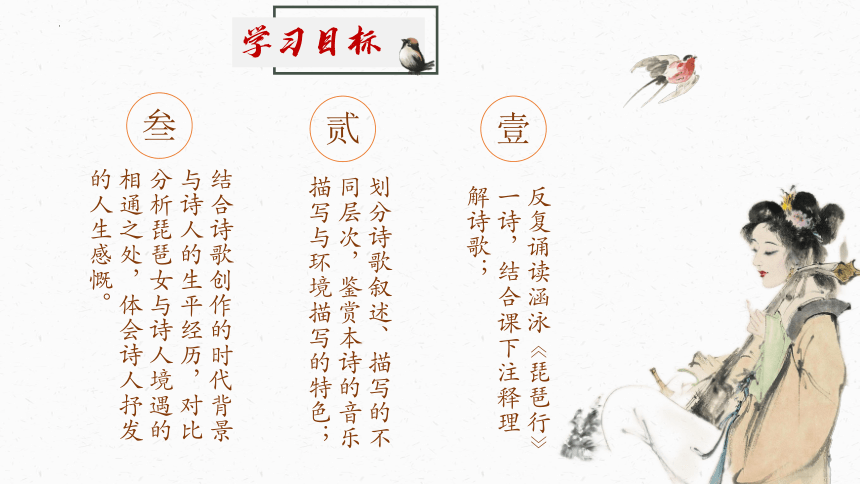 学习目标
壹
反复诵读涵泳《琵琶行》
一诗，结合课下注释理
解诗歌；
贰
划分诗歌叙述、描写的不
同层次，鉴赏本诗的音乐
描写与环境描写的特色；
叁
结合诗歌创作的时代背景
与诗人的生平经历，对比
分析琵琶女与诗人境遇的
相通之处，体会诗人抒发
的人生感慨。